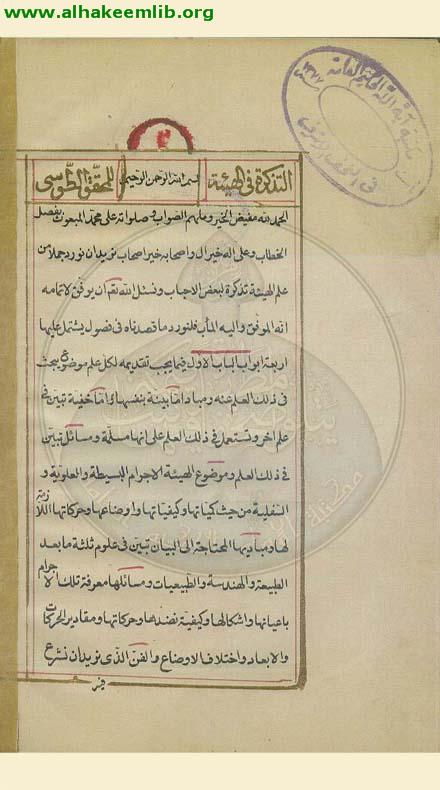 www.alhakeemlib.org
التذكرة فى الهيئة بسم الله الرحمن الرحيم للمحقق الطوسى
الحمد لله مفيض الخير وملهم الصواب وصلواته على محمد المبعوث بفصل
الخطاب وعلى اله خير ال واصحابه خير اصحاب نريد ان نورد جملا من
علم الهيئة تذكرة لبعض الاحباب ونسئل الله تع ان يوفق لاتمامه
انه الموفق واليه المأب فلنورد ما قصدناه فى فصول يشتمل عليها
اربعة ابواب الباب الاول فيما يجب تقديمه لكل علم موضوع يبحث
فى ذلك العلم عنه ومباد اما بينة بنفسها واما خفية تبين فى
علم اخر وتستعمل فى ذلك العلم على انها مسلمة ومسائل تبين
فى ذلك العلم وموضوع الهيئة الاجرام البسيطة والعلوية و
السفلية من حيث كمياتها وكيفياتها واوضاعها وحركاتها اللازمة
لها ومباديها المحتاجة الى البيان تبين فى علوم ثلثة ما بعد
الطبيعة والهندسة والطبيعيات ومسائلها معرفة تلك الاجرام
باعيانها واشكالها وكيفية نضدها وحركاتها ومقادير الحركات
والابعاد واختلاف الاوضاع والفن الذى نريد ان نشرع
فيه